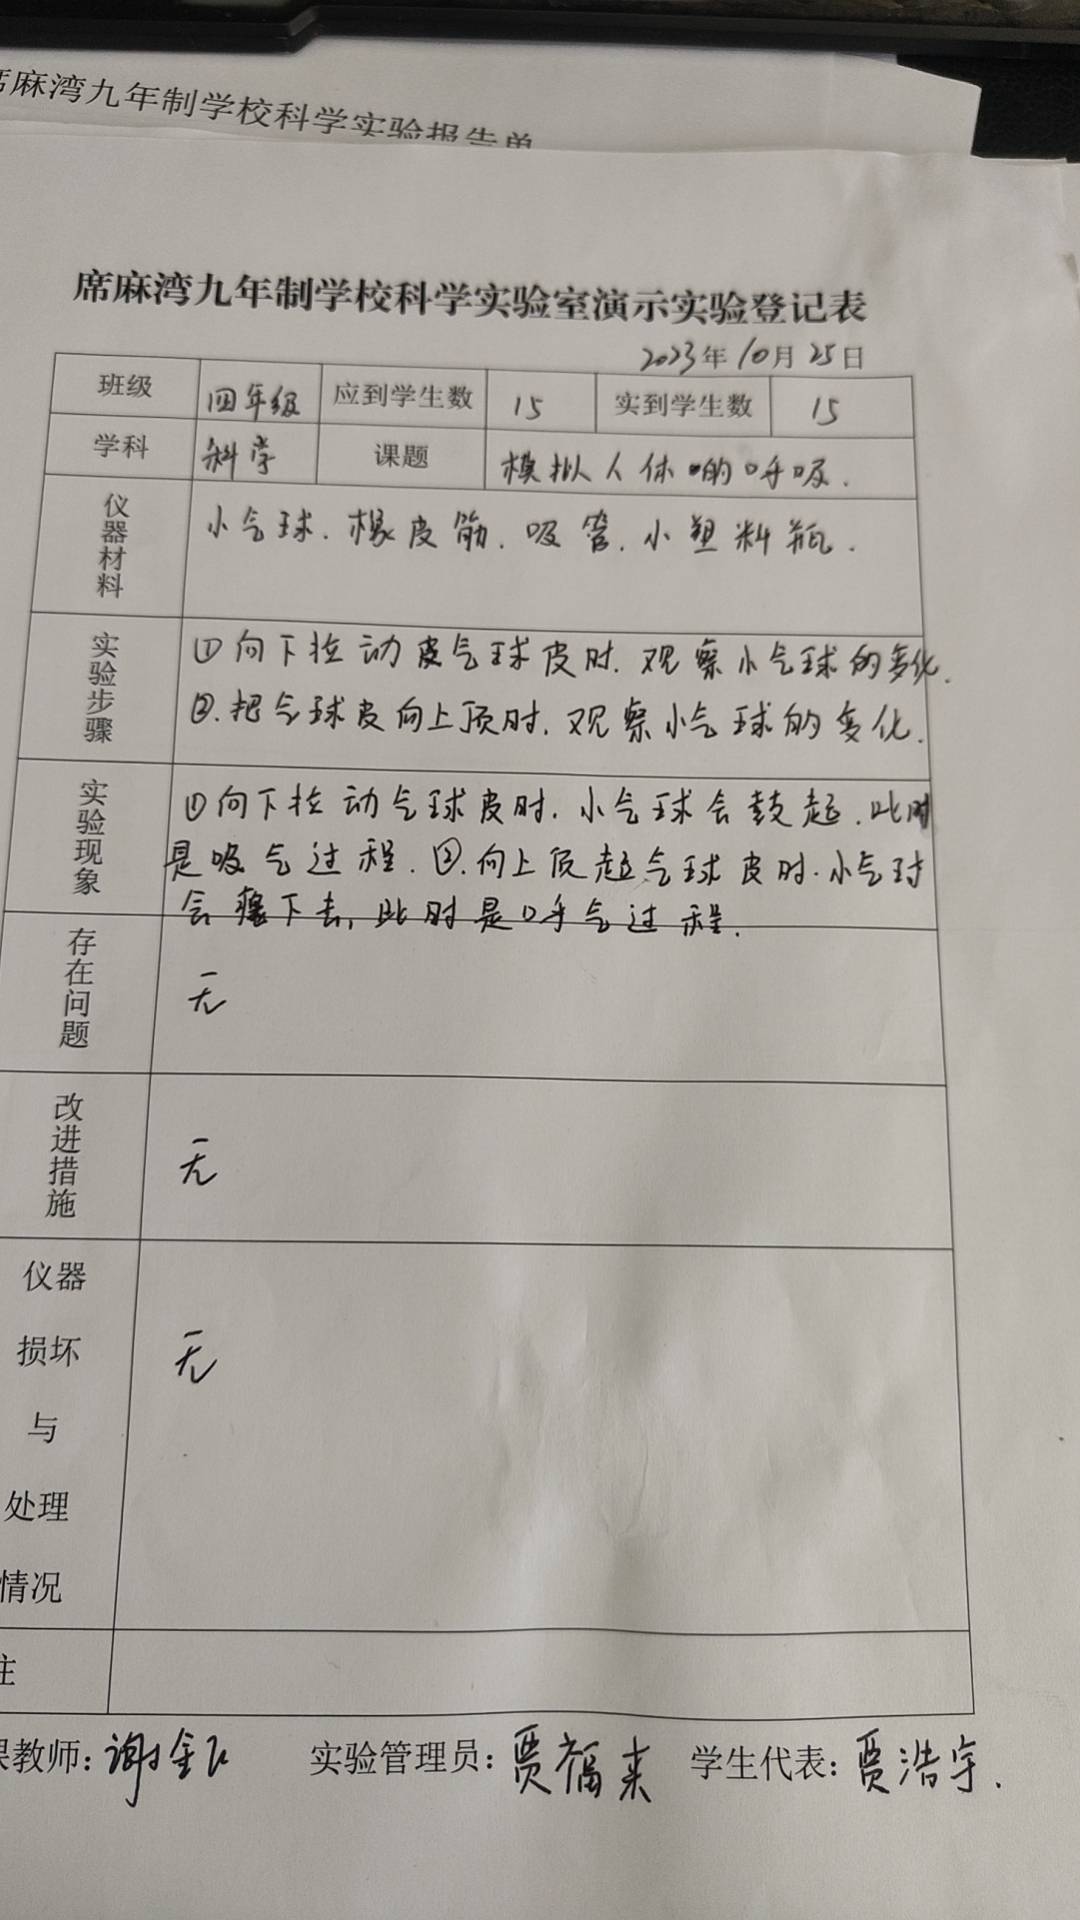 席麻湾九年制学校科学实验报告单
席麻湾九年制学校科学实验室演示实验登记表
2023年10月25日
班级 四年级 应到学生数 15 实到学生数 15
学科 科学 课题 模拟人体的呼吸.
仪器材料 小气球.橡皮筋.吸管.小塑料瓶.
实验步骤 ①向下拉动皮气球皮时.观察小气球的变化.
②.把气球皮向上顶时.观察小气球的变化.
实验现象 ①向下拉动气球皮时.小气球会鼓起.此时
是吸气过程.②.向上顶起气球皮时.小气球
会瘪下去,此时是呼气过程.
存在问题 无
改进措施 无
仪器
损坏 无
与
处理
情况
注
课教师:谢 实验管理员:贾福来 学生代表:贾浩宇.